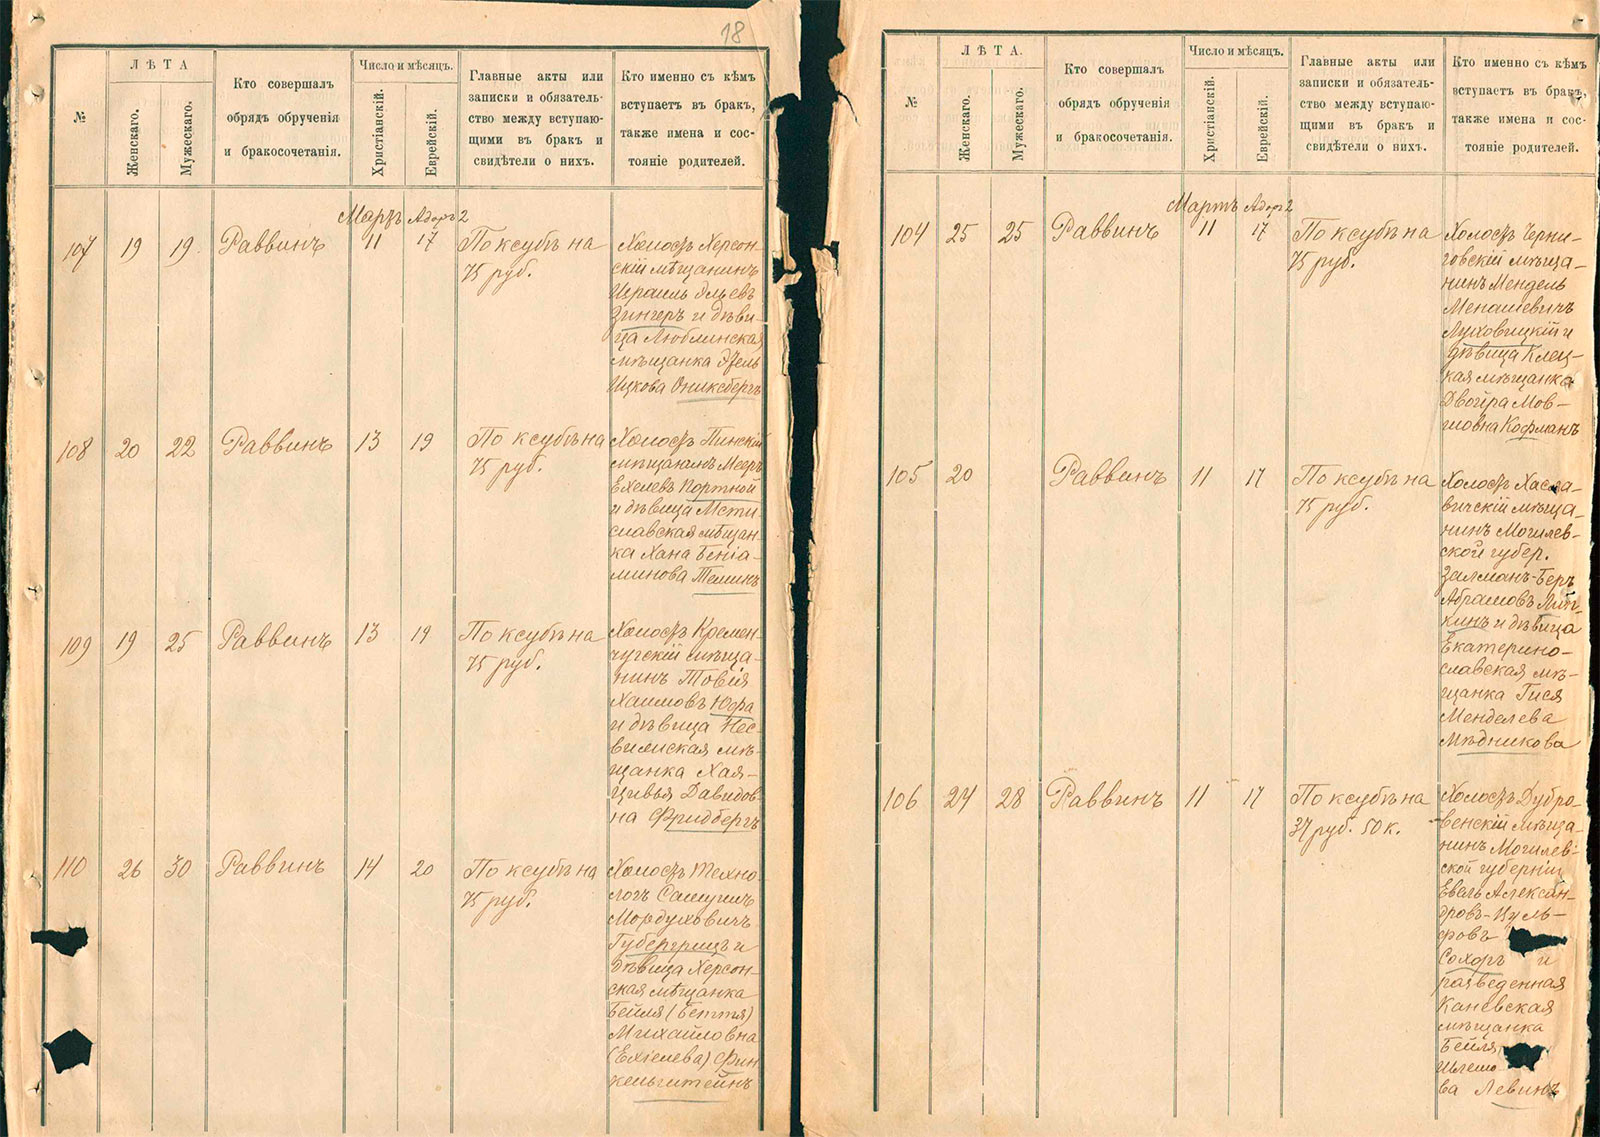 18
№
ЛѢТА
Женскаго.
Мужескаго.
Кто совершалъ
обрядъ обрученія
и бракосочетанія.
Число и мѣсяцъ.
Христіанскій.
Еврейскій.
Главные акты или
записки и обязатель-
ство между вступаю-
щими въ бракъ и
свидѣтели о нихъ.
Кто именно съ кѣмъ
вступаетъ въ бракъ,
также имена и сос-
тояніе родителей.
Мартъ Адаръ 2
107 19 19. Раввинъ 11 17 По ксубѣ на
75 руб.
Холостъ Херсон-
скій мѣщанинъ
Израиль Эльевъ
Зингеръ и дѣви-
ца Люблинская
мѣщанка Этель
Ицкова Ониксбергъ
108 20 22 Раввинъ 13 19 По ксубѣ на
75 руб.
Холостъ Пинскій
мѣщанинъ Мееръ
Ехелевъ Портной
и дѣвица Мсти-
славская мѣщан-
ка Хана Беніа-
минова Теминъ
109 19 25 Раввинъ 13 19 По ксубѣ на
75 руб.
Холостъ Кремен-
чугскій мѣща-
нинъ Товія
Хаимовъ Юфа
и дѣвица Нес-
вижская мѣ-
щанка Хая-
Цивья Давидов-
на Фридбергъ
110 26 30 Раввинъ 14 20 По ксубѣ на
75 руб.
Холостъ Техно-
логъ Самуилъ
Мордуховичъ
Губергрицъ и
дѣвица Херсон-
ская мѣщанка
Бейля (Бетти)
Михайловна
(Ехіелева) Фин
кельштейнъ
№
ЛѢТА.
Женскаго.
Мужескаго.
Кто совершалъ
обрядъ обрученія
и бракосочетанія.
Число и мѣсяцъ.
Христіанскій.
Еврейскій.
Главные акты или
записки и обязатель-
ство между вступаю-
щими въ бракъ и
свидѣтели о нихъ.
Кто именно съ кѣмъ
вступаетъ въ бракъ,
также имена и сос-
тояніе родителей.
Мартъ Адаръ 2
104 25 25 Раввинъ 11 17 По ксубѣ на
75 руб.
Холостъ Черни-
говскій мѣща-
нинъ Мендель
Менашевичъ
Луховицкій и
дѣвица Клец-
кая мѣщанка
Двойра Мов-
шовна Кофманъ
105 20 Раввинъ 11 17 По ксубѣ на
75 руб.
Холостъ Хасла-
вичскій мѣща-
нинъ Могилев-
ской губер.
Залманъ-Беръ
Абрамовъ
и дѣвица
Екатерино-
славская мѣ-
щанка Гися
Менделева
Мѣдникова
106 24 28 Раввинъ 11 17 По ксубѣ на
37 руб. 50 к.
Холостъ Дубро-
венскій мѣща-
нинъ Могилев-
ской губерніи
Александ-
ровъ-Вуль-
фовъ
Сохоръ и
разведенная
Каневская
мѣщанка
Бейля
Шлемо-
ва Левинъ